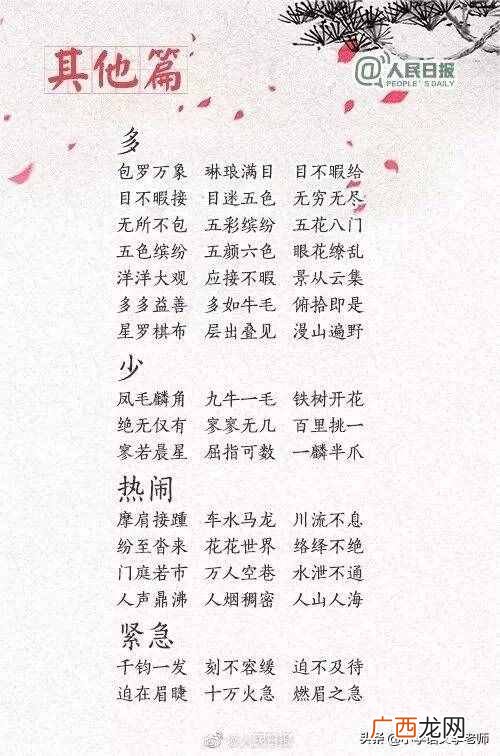 其他篇
人民日报
PEOPLE'S DAILY
多
包罗万象 琳琅满目 目不暇给
目不暇接 目迷五色 无穷无尽
无所不包 五彩缤纷 五花八门
五色缤纷 五颜六色 眼花缭乱
洋洋大观 应接不暇 景从云集
多多益善 多如牛毛 俯拾即是
星罗棋布 层出叠见 漫山遍野
少
凤毛麟角 九牛一毛 铁树开花
绝无仅有 寥寥无几 百里挑一
寥若晨星 屈指可数 一麟半爪
热闹
摩肩接踵 车水马龙 川流不息
纷至沓来 花花世界 络绎不绝
门庭若市 万人空巷 水泄不通
人声鼎沸 人烟稠密 人山人海
紧急
千钧一发 刻不容缓 迫不及待
迫在眉睫 十万火急 燃眉之急
@人民日报
头条 @小学语文李老师
广西龙网